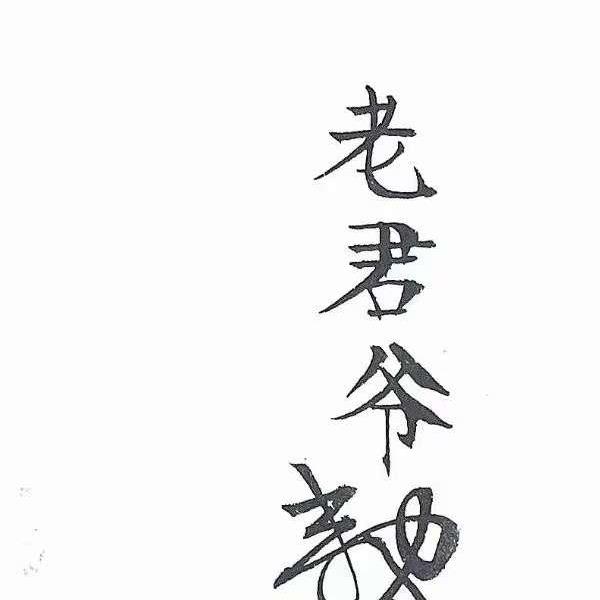 老君爷